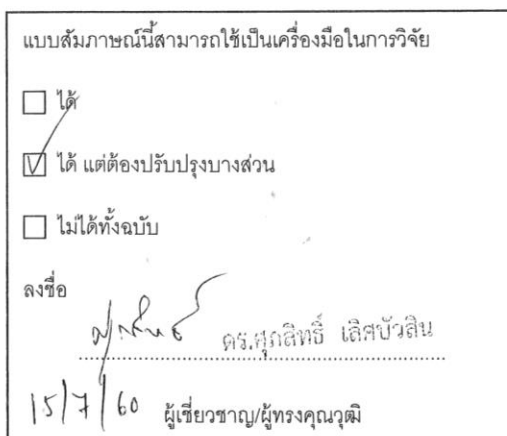 แบบสัมภาษณ์นี้สามารถใช้เป็นเครื่องมือในการวิจัย
ได้
ได้ แต่ต้องปรับปรุงบางส่วน
ไม่ได้ทั้งฉบับ
ลงชื่อ
ดร.ศุภสิทธิ์ เลิศบัวสิน
15/7/60 ผู้เชี่ยวชาญ/ผู้ทรงคุณวุฒิ